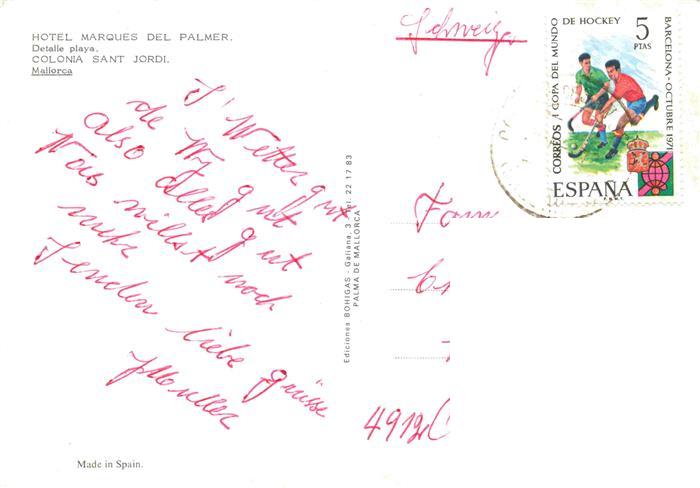 HOTEL MARQUES DEL PALMER.
Detalle playa.
COLONIA SANT JORDI.
Mallorca
S' Wetter gut
de Wy gut
also alles gut
Was willst noch
mehr
Senden liebe grüsse
Made in Spain.
Ediciones BOHIGAS - Galiana, 3 - Tel: 22 17 83
PALMA DE MALLORCA
Schweiz
Fam
4912
CORREOS I COPA DEL MUNDO
DE HOCKEY
5
PTAS
BARCELONA-OCTUBRE 1971
ESPAÑA
F.N.M.T.